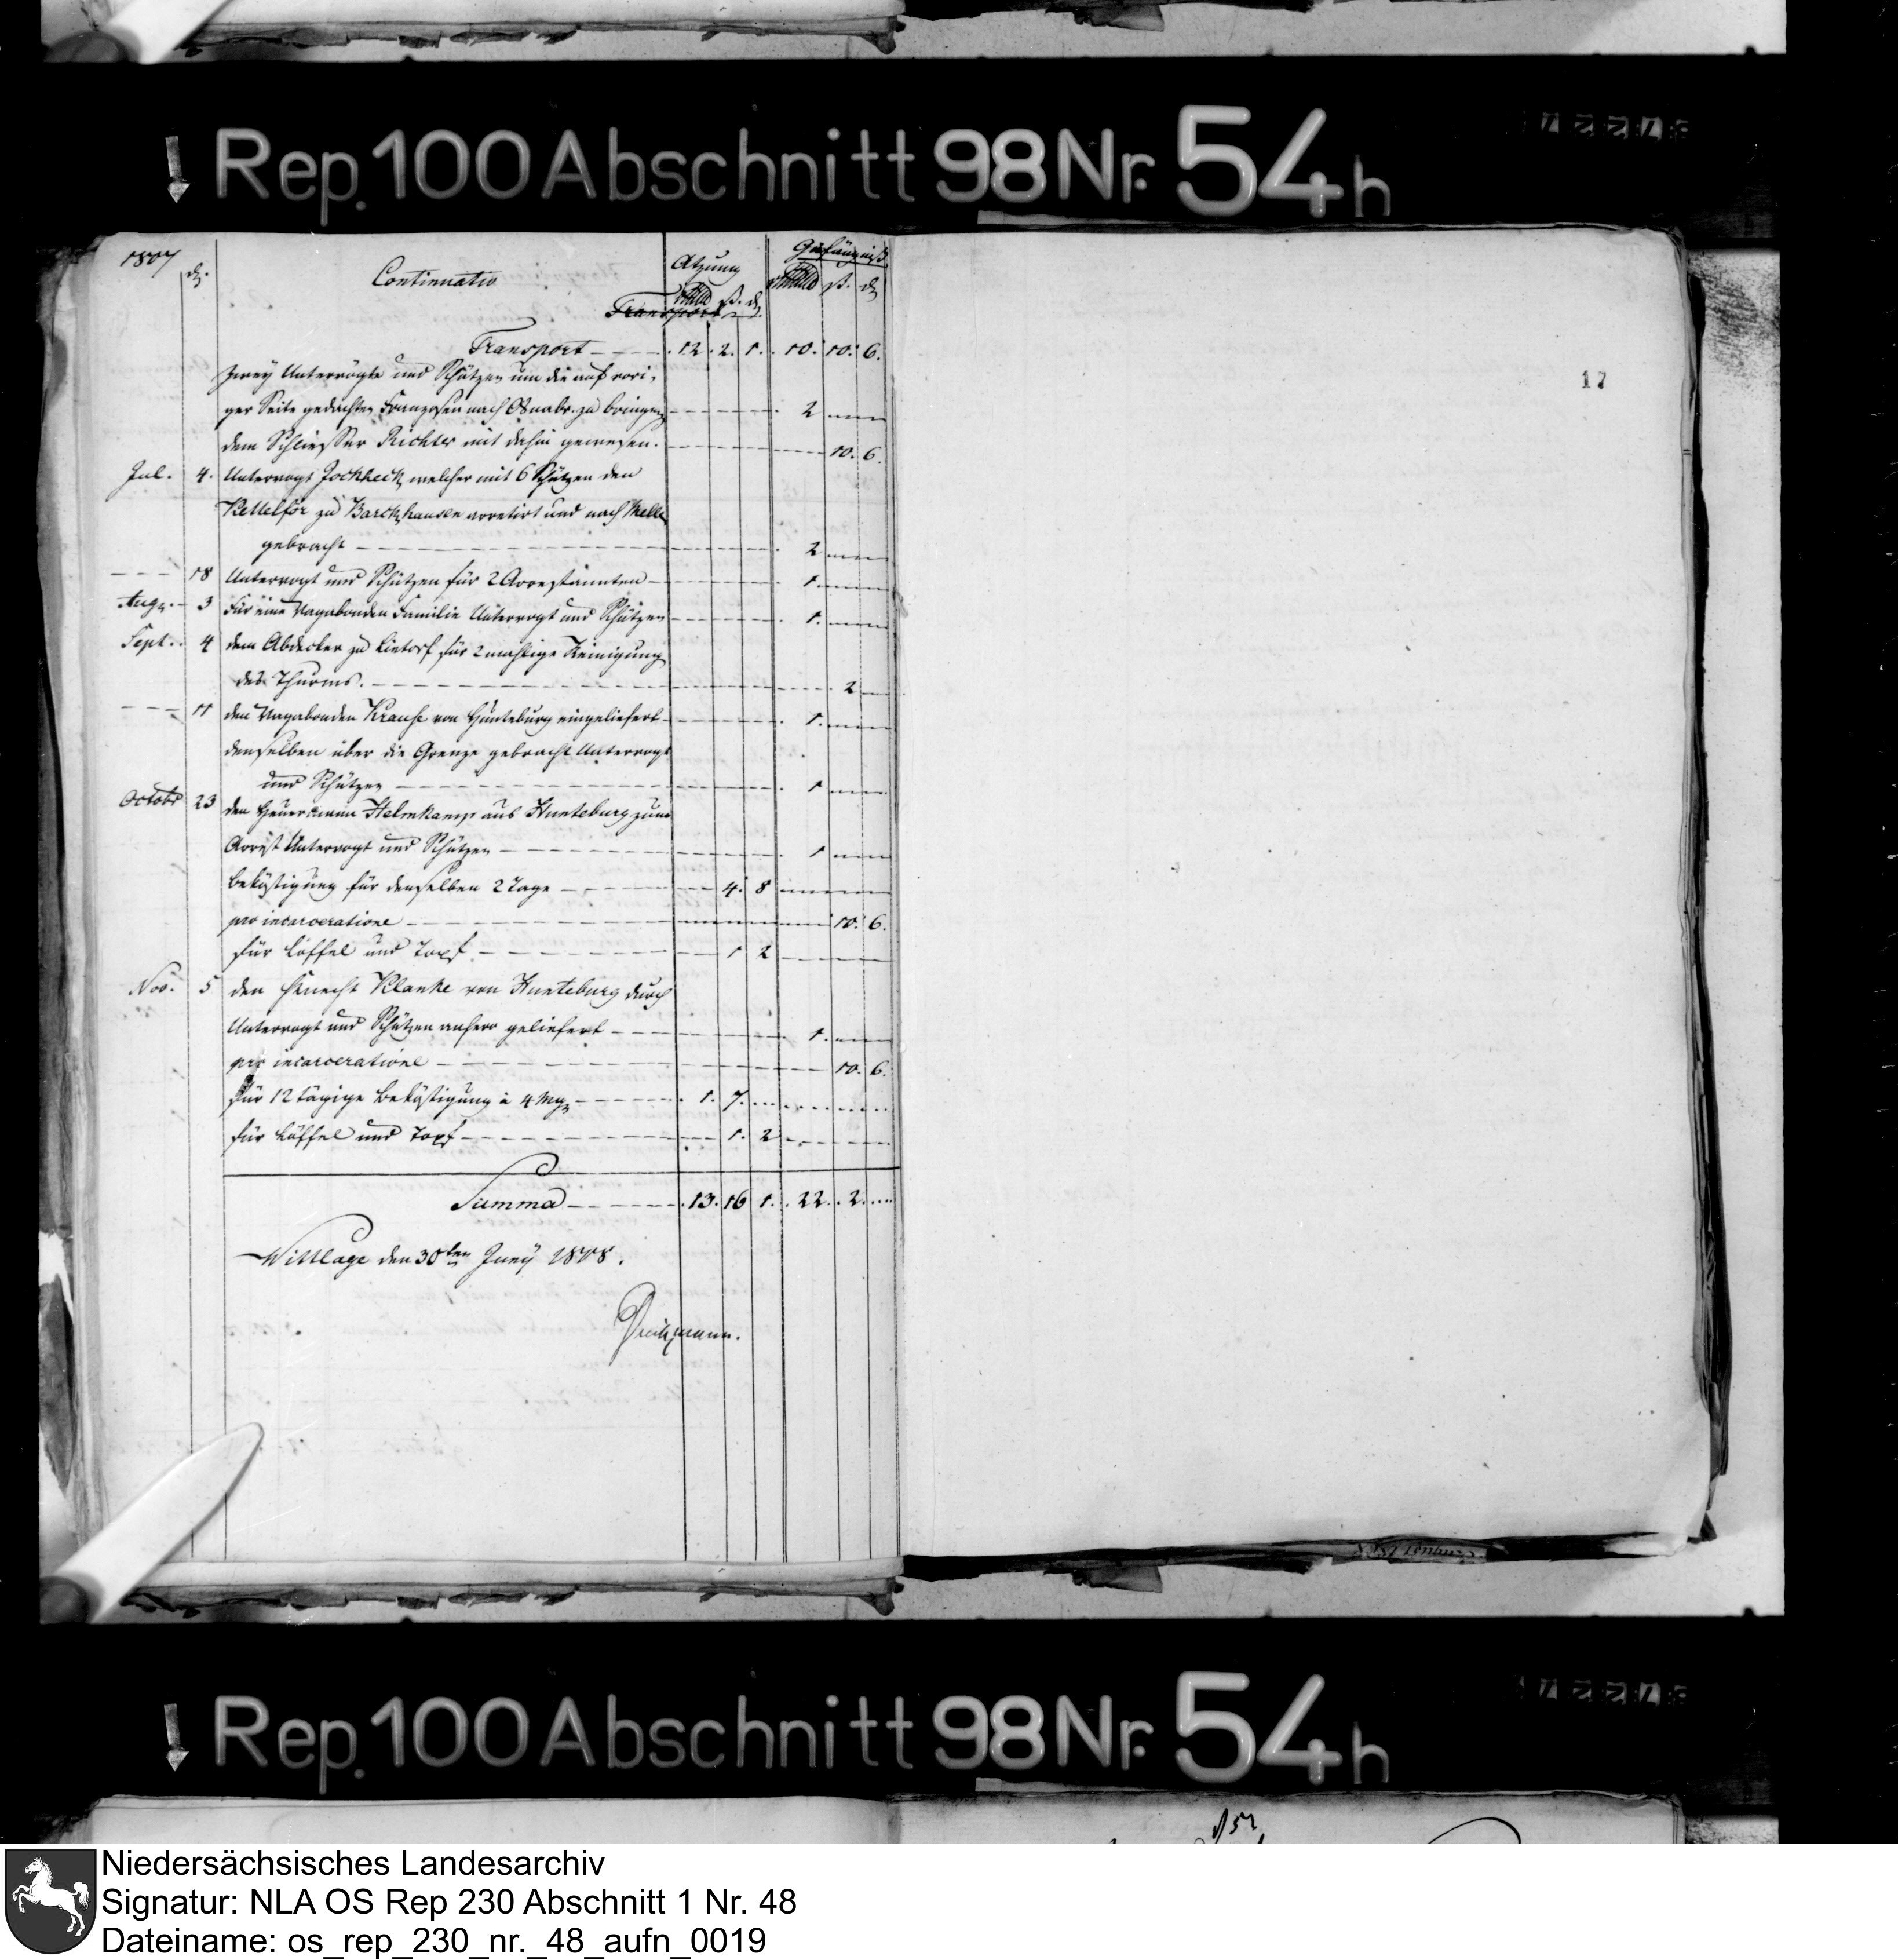 Rep. 100 Abschnitt 98 Nr. 54 h
1807
Continuatio
Atzung
Gefängniß
Rthlr ß. d
Rthlr ß. d
Transport
Transport . 12. 2. 1. 10. 10. 6.
zwey Untervögte und Schützen um die auf vori-
ger Seite gedachten Franzosen nach Osnabr. zu bringen 2
dem Schliesser Richter mit dahin gewesen. 10. 6.
Jul. 4. Untervogt Jockheck, welcher mit 6 Schützen den
Kettelför zu Barckhausen arretirt und nach Melle
gebracht 2
18 Untervogt und Schützen für 2 Arrestannten 1.
Aug. 3 Für eine Vagabonden Familie Untervogt und Schützen 1.
Sept. 4 dem Abdecker zu Lintorf für 2 mahlige Reinigung
des Thurms. 2
11 den Vagabonden Krause von Hunteburg eingeliefert 1.
denselben über die Grenze gebracht Untervogt
und Schützen 1
Octobr 23 den Heuermann Helmkamp aus Hunteburg zum
Arrest Untervogt und Schützen 1
Beköstigung für denselben 2 Tage 4. 8
pro incarceratione 10. 6.
für Löffel und Topf 1 2
Nov. 5 den Knecht Klanke von Hunteburg durch
Untervogt und Schützen anhero geliefert 1.
pro incarceratione 10. 6.
Für 12 tägige Beköstigung à 4 Mg 1. 7.
für Löffel und Topf 1. 2
Summa . 13. 16 1. 22. 2.
Wittlage den 30ten Juny 1808.
17
Rep. 100 Abschnitt 98 Nr. 54 h
Niedersächsisches Landesarchiv
Signatur: NLA OS Rep 230 Abschnitt 1 Nr. 48
Dateiname: os_rep_230_nr._48_aufn_0019